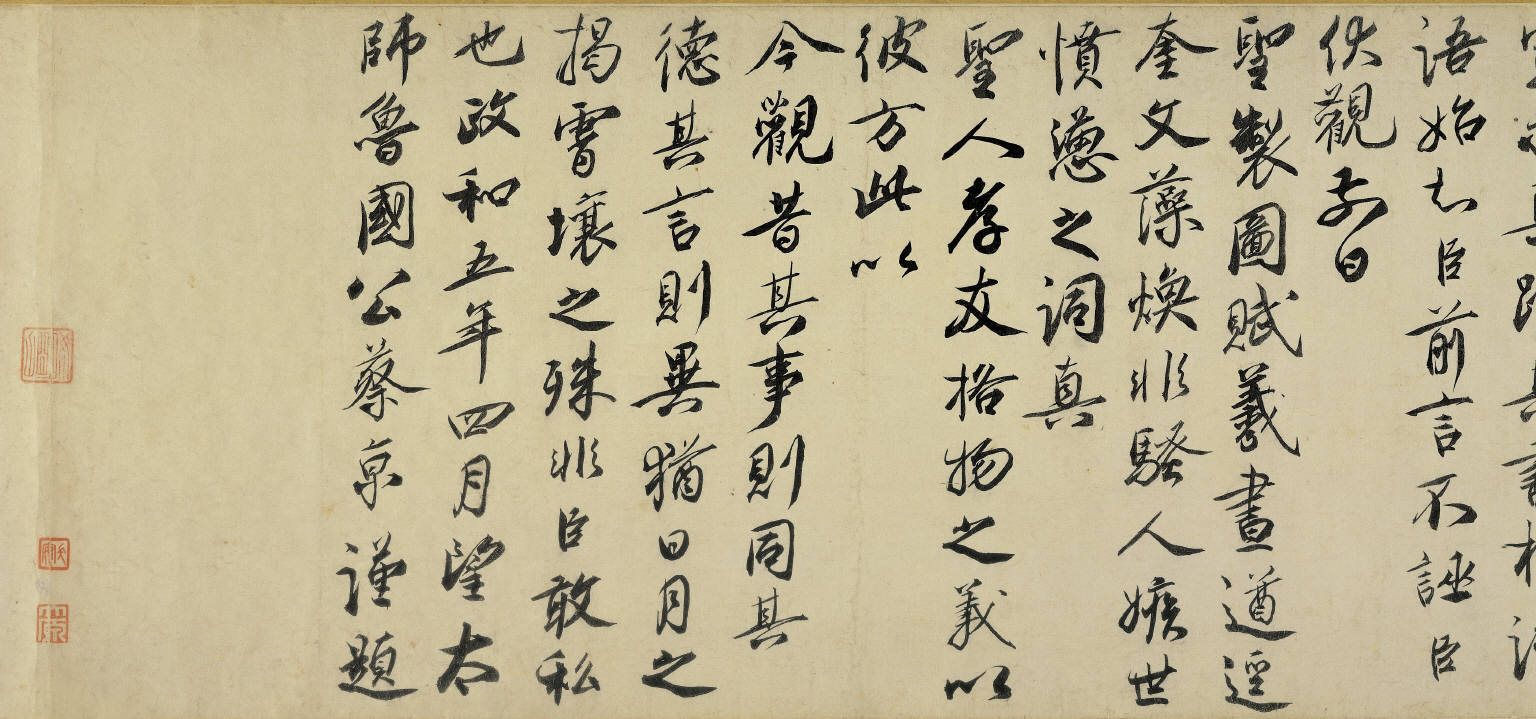 語始知臣前言不誣臣
伏觀日
聖製圖賦羲畫遒逕
奎文藻煥非騷人嫉世
憤懣之詞真
聖人孝友格物之義以
彼方此以
今觀昔其事則同其
德其言則異猶日月之
揭霄壤之殊非臣敢私
也政和五年四月望太
師魯國公蔡京謹題